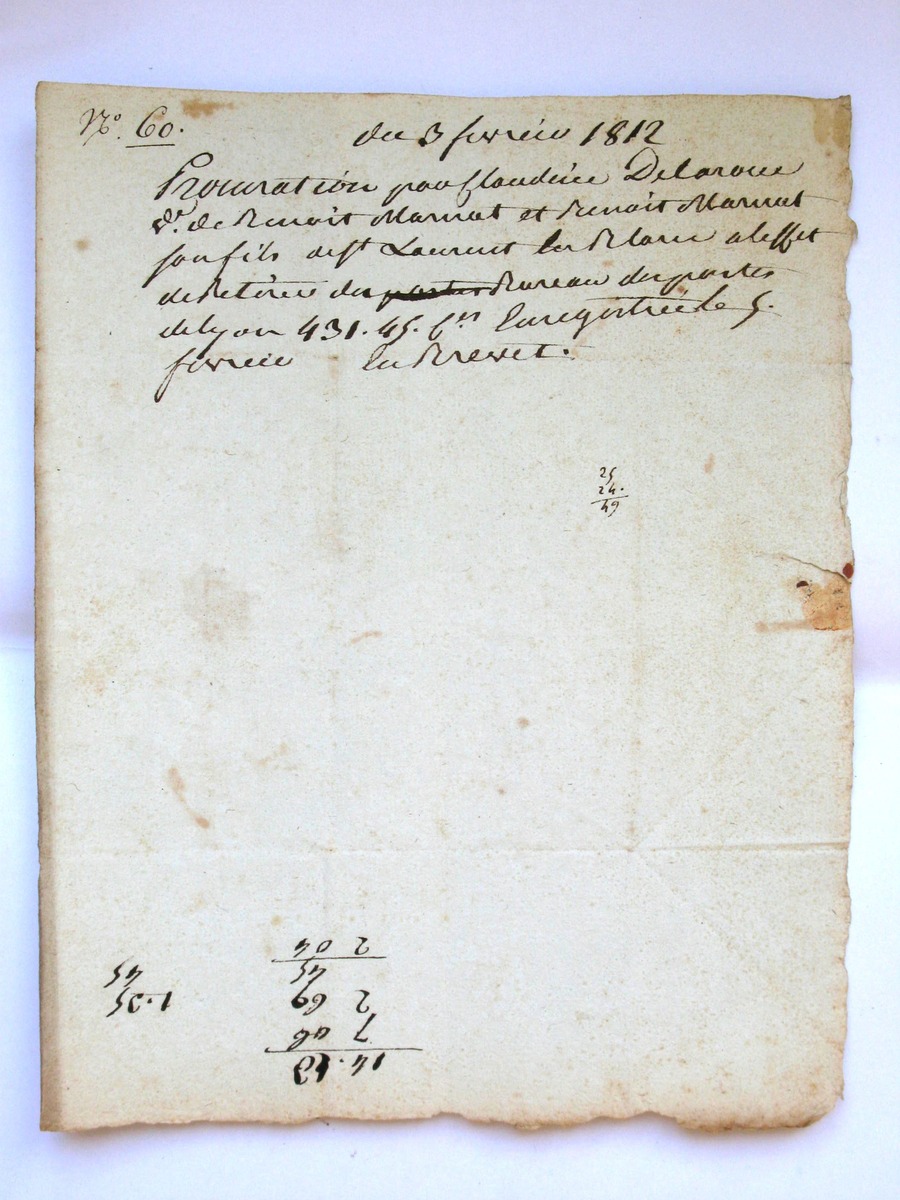 No. 60.
du 3 fevrier 1812
Procuration par Claudine Delaroue
Ve. de Benoit Marnat et Benoit Marnat
son fils de St Laurent
de Retirer du postes Bureau des postes
de lyon 431. 45. Enregistrée le 5.
fevrier En Brevet.
25
24.
49
14.
7
2 69
45
2 04
1.35
45